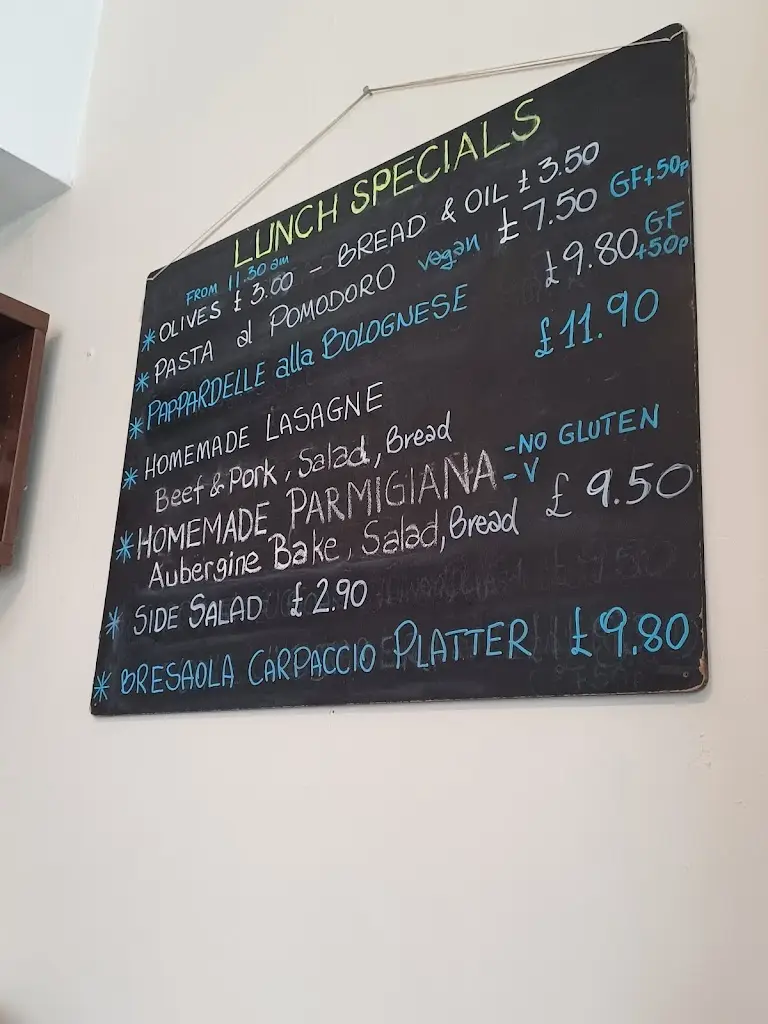 LUNCH SPECIALS
FROM 11.30 am
* OLIVES £ 3.00 - BREAD & OIL £ 3.50
* PASTA al POMODORO vegan £ 7.50 GF+50p
* PAPPARDELLE alla BOLOGNESE £9.80 GF +50p
* HOMEMADE LASAGNE £11.90
Beef & Pork, Salad, Bread
* HOMEMADE PARMIGIANA -NO GLUTEN -V
Aubergine Bake, Salad, Bread £ 9.50
* SIDE SALAD £ 2.90
* BRESAOLA CARPACCIO PLATTER £9.80